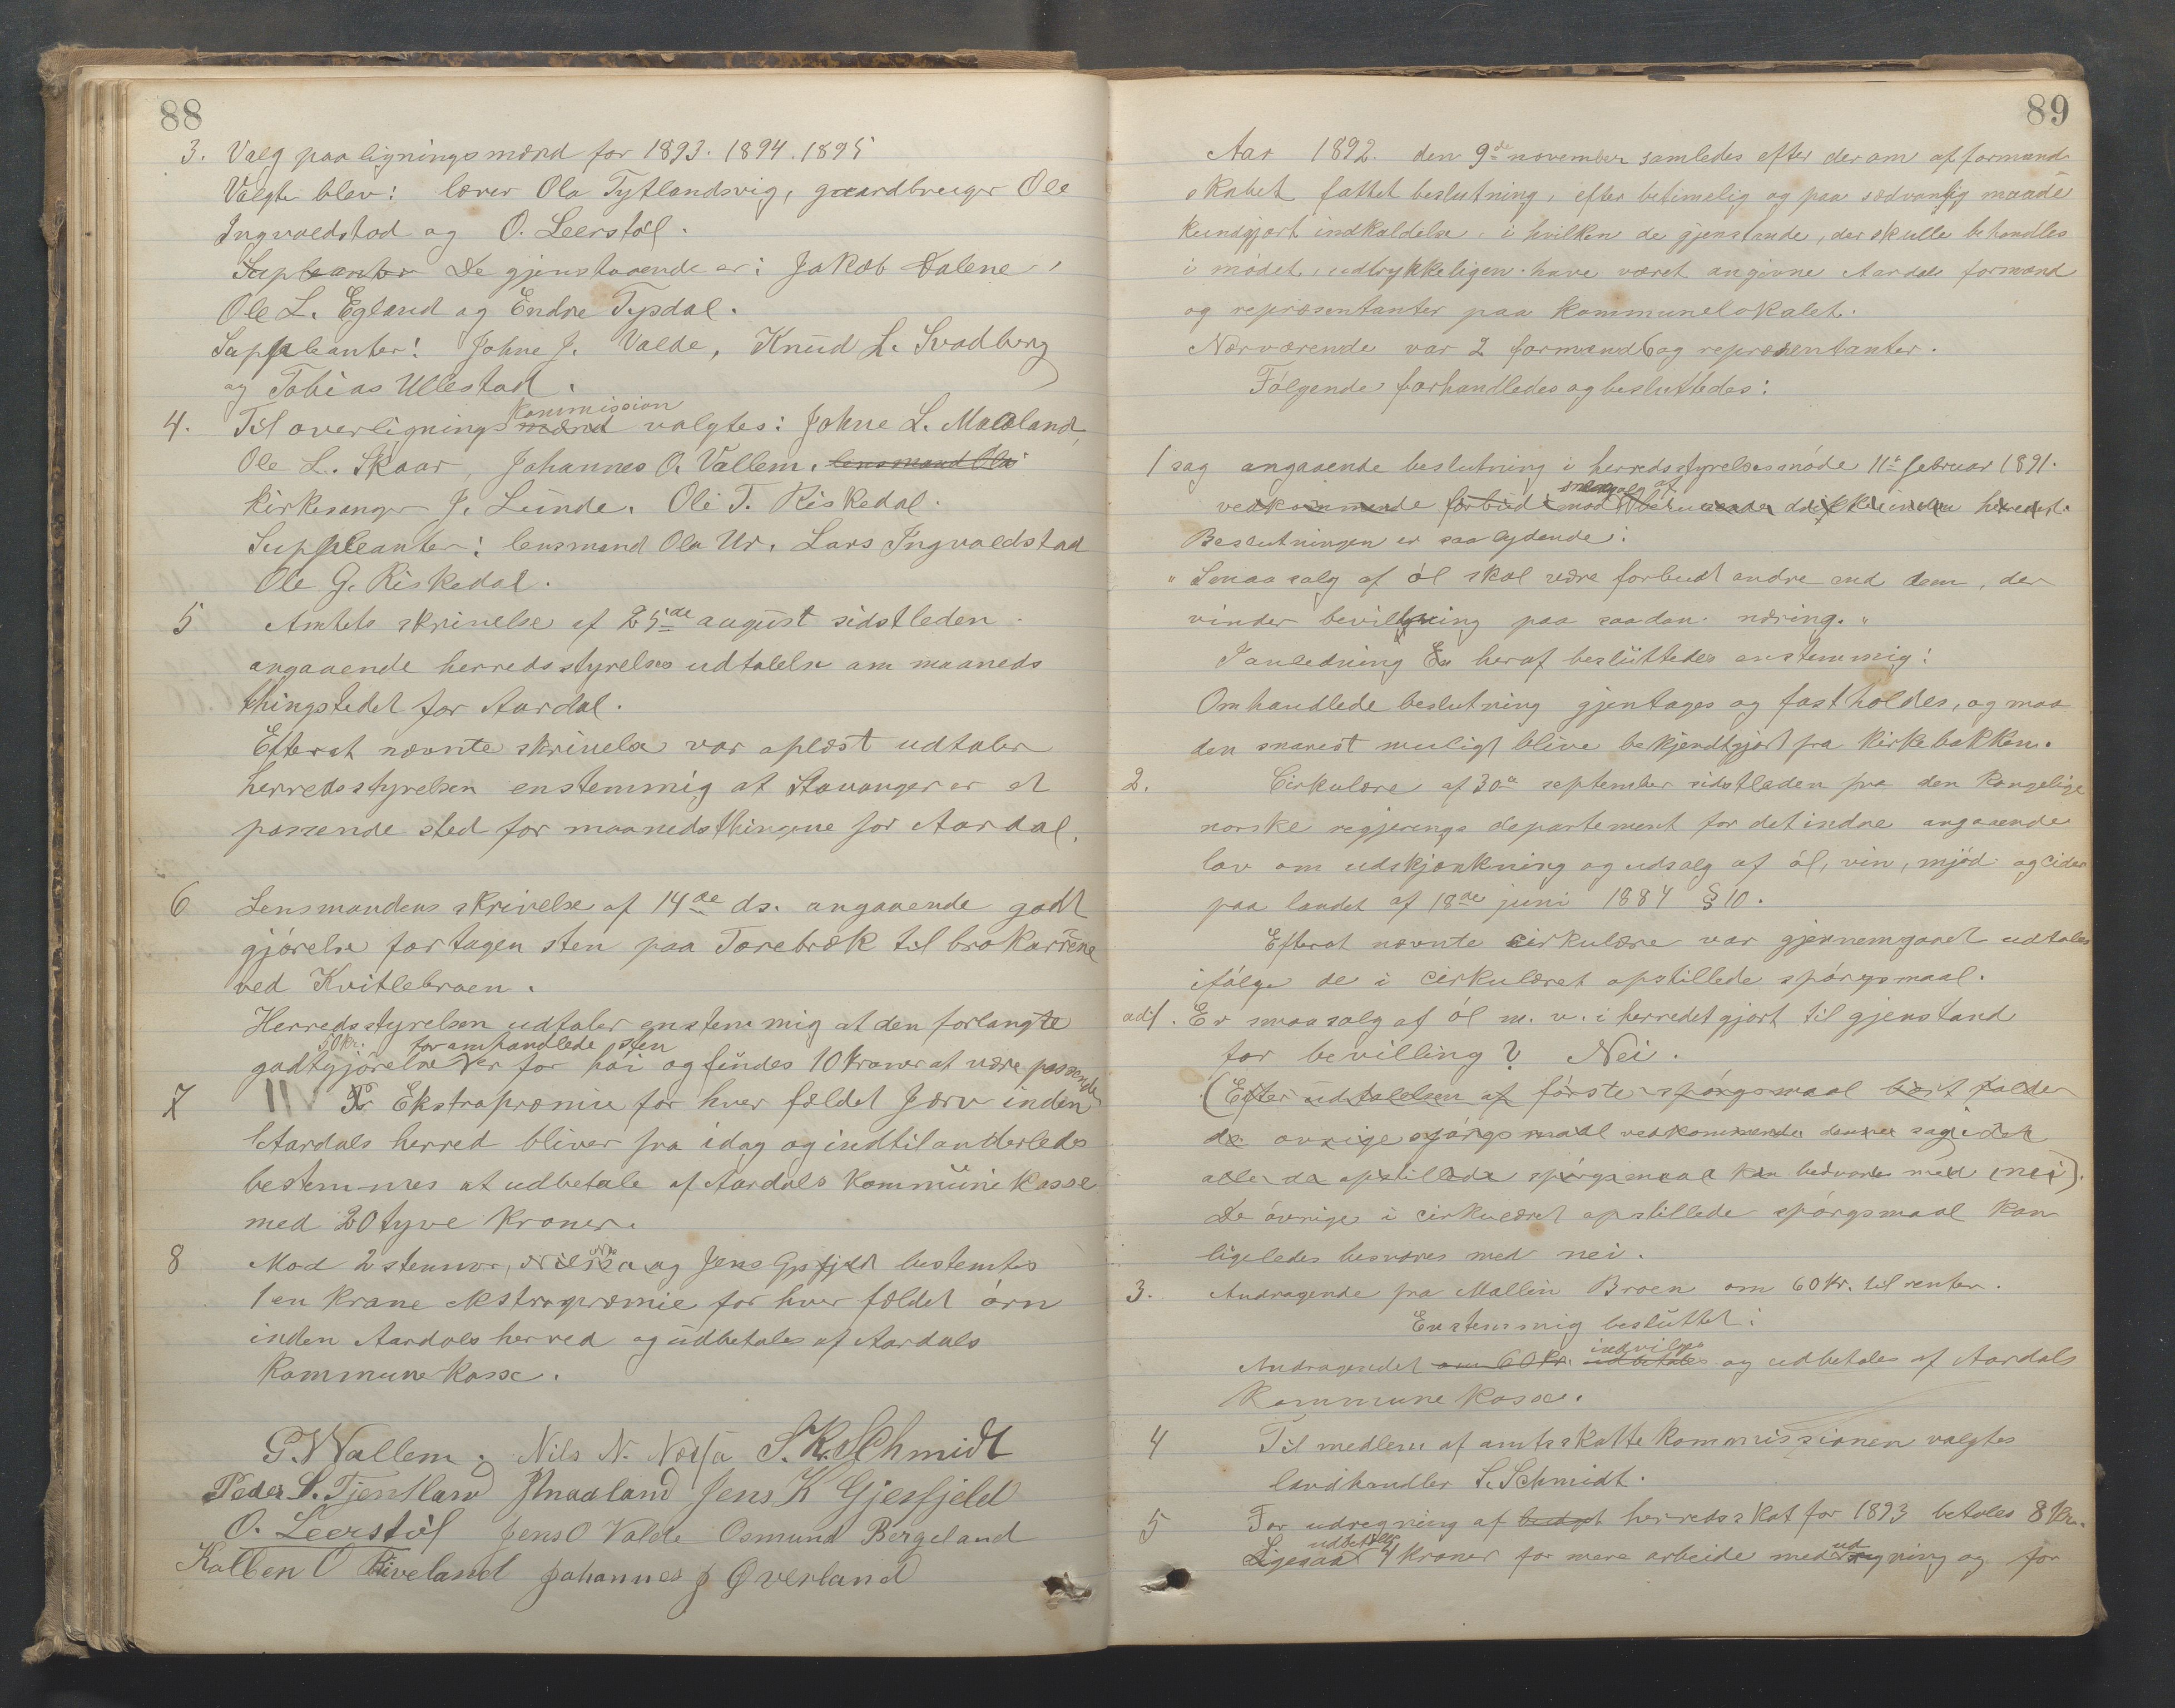 88
3. Valg paa ligningsmænd for 1893. 1894. 1895
Valgte blev: lærer Ola Tytlandsvig, gaardbruger Ole
Ingvaldstad og O. Leerstøl.
Supleanter De gjenstaaende er: Jakob Valene,
Ole L. Egland og Endre Tysdal.
Suppleanter: Johne J. Valde, Knud L. Svadberg
og Tobias Ullestad.
4. Til overlignings mænd kommission valgtes: Johne L. Maaland,
Ole L. Skaar, Johannes O. Vallem, lensmand Ola
kirkesanger J. Lunde. Ole T. Riskedal.
Suppleanter: lensmand Ola Ur. Lars Ingvaldstad
Ole G. Riskedal.
5 Amtets skrivelse af 25de august sidstleden
angaaende herredsstyrelses udtalelse om maaneds
thingstedet for Aardal.
Efterat nævnte skrivelse var oplæst udtaler
herredsstyrelsen enstemmig at Stavanger er et
passende sted for maanedsthingene for Aardal.
6 Lensmandens skrivelse af 14de ds. angaaende godt
gjørelse for tagen sten paa Torebræk til brokarrene
ved Kvitlebroen.
Herredsstyrelsen udtaler enstemmig at den forlangte
50 kr. for omhandlede sten
godtgjørelse er for høi og findes 10 kroner at være passende
7 Ekstrapræmie for hver fældet Jærv inden
Aardals herred bliver fra idag og indtil anderledes
bestemmes at udbetale af Aardals kommunekasse
med 20 tyve kroner.
8 Mod 2 stemmer, og Jens Gjesfjeld bestemtes
1 en krone ekstrapræmie for hver fældet ørn
inden Aardals herred og udbetales af Aardals
kommunekasse.
P. Wallem. Nils N. Nessa S. K. Schmidt
Peder S. Tjentland J Maaland Jens K Gjesfjeld
O. Leerstøl Jens O Valde Osmund Bergeland
Kolben O Riveland Johannes J Øverland
89
Aar 1892. den 9de november samledes efter derom af formand
skabet fattet beslutning, efter betimelig og paa sædvanlig maade
kundgjort indkaldelse, i hvilken de gjenstande, der skulle behandles
i mødet, udtrykkeligen have været angivne Aardals formænd
og repræsentanter paa kommunelokalet.
Nærværende var 2 formænd 6 og repræsentanter.
Følgende forhandledes og besluttedes:
1 sag angaaende beslutning i herredsstyrelsesmøde 11te februar 1891.
smaasalg af
vedkommende forbud mod drikke i herredet.
Beslutningen er saa lydende:
" Smaasalg af øl skal være forbudt andre end dem, der
vinder bevillgning paa saadan næring. "
I anledning heraf besluttedes enstemmig:
Omhandlede beslutning gjentages og fastholdes, og maa
den snarest muligt blive bekjendtgjort fra kirkebakken.
2. Cirkulære af 30te september sidstleden fra den kongelige
norske regjerings departement for det indre angaaende
lov om udskjænkning og udsalg af øl, vin, mjød og cider
paa landet af 18de juni 1884 § 10.
Efterat nævnte cirkulære var gjennemgaaet udtales
ifølge de i cirkulæret opstillede spørgsmaal.
ad 1. Er smaasalg af øl m. v. i herredet gjort til gjenstand
for bevilling? Nei.
(Efter udtalelsen af første spørgsmaal bort falder
de øvrige spørgsmaal vedkommende denne sag idet
alle de opstillede spørgsmaal kan besvares med (nei).
De øvrige i cirkulæret opstillede spørgsmaal kan
ligeledes besvares med nei.
3. Andragende fra Mallin Broen om 60 kr. til renter.
Enstemmig besluttet:
Andragendet om 60 kr. udbetales indvilges og udbetales af Aardals
kommunekasse.
4 Til medlem af amtsskattekommissionen valgtes
landhandler S. Schmidt.
5 For udregning af budget herredsskat for 1893 betales 8 kr.
Ligesaa udbetales 4 kroner for mere arbeide med udregning og for